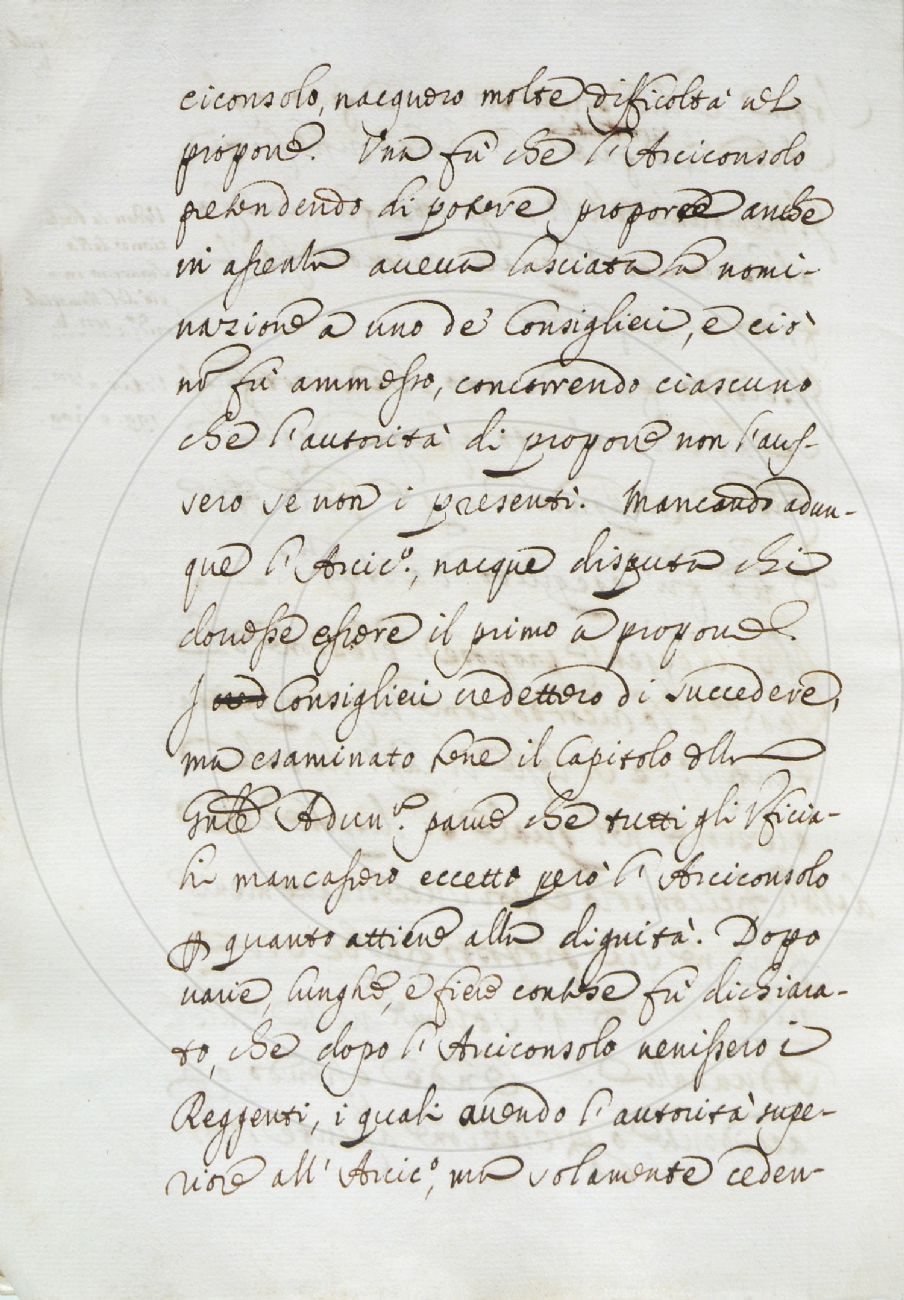 ciconsolo, nacquero molte difficoltà nel
proporre. Una fù che l'Arciconsolo
pretendendo di potere proporre anche
in assenza aveva lasciata la nomi-
nazione a uno de' Consiglieri, e ciò
nō fù ammesso, concorrendo ciascuno
che l'autorità di proporre non l'aves-
sero se non i presenti. Mancando adun-
que l'Arcic.º, nacque disputa chi
dovesse essere il primo a proporre.
I Consiglieri credettero di succedere,
ma esaminato bene il Capitolo dlla
Gnle Adun.ª parve che tutti gli Vficia-
li mancassero eccetto però l'Arciconsolo
ꝑ quanto attiene alla dignità. Dopo
varie, lunghe, e fiere contese fù dichiara-
to, che dopo l'Arciconsolo venissero i
Reggenti, i quali avendo l'autorità supe-
riore all'Arcic.º, ma solamente ceden-